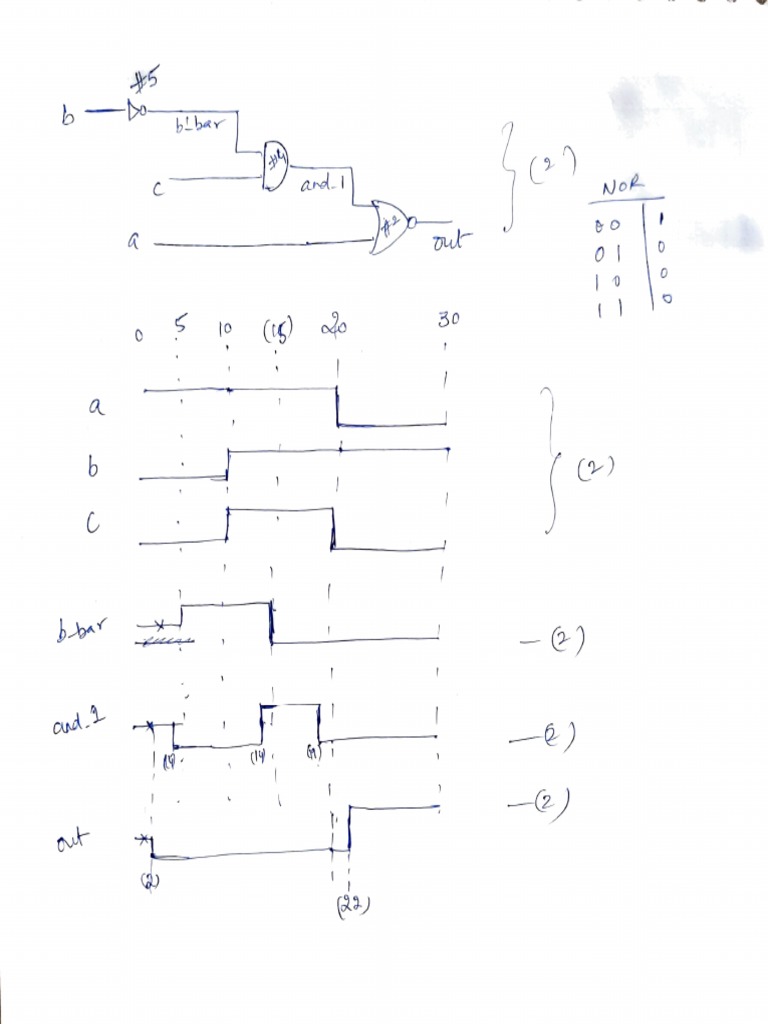 #5
b
b_bar
#4
c
and_1
#2
a
out
} (2)
NOR
0 0 | 1
0 1 | 0
1 0 | 0
1 1 | 0
0 5 10 (15) 20 30
a
b
} (2)
C
b_bar
— (2)
and_1
(14) (19)
— (2)
— (2)
out
(2)
(22)